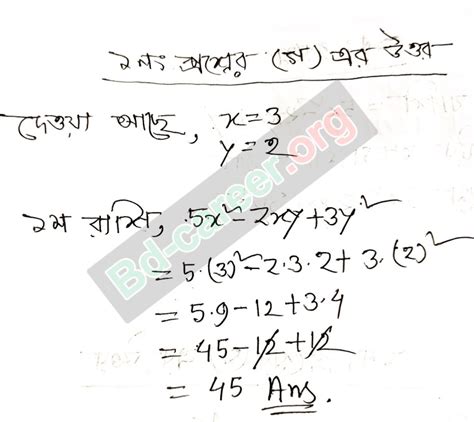 ১নং প্রশ্নের (গ) এর উত্তর
দেওয়া আছে, x = 3
y = 2
১ম রাশি, 5x² - 2xy + 3y²
= 5·(3)² - 2·3·2 + 3·(2)²
= 5·9 - 12 + 3·4
= 45 - 12 + 12
= 45 Ans.
Bd-career.org